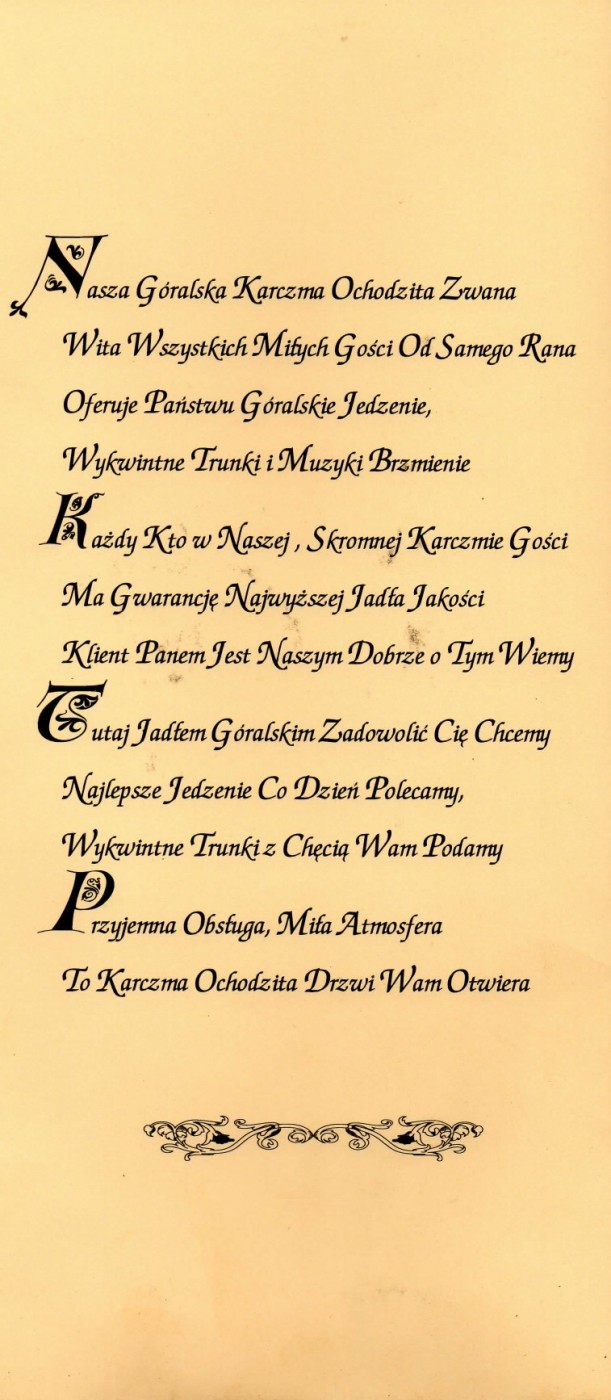 Nasza Góralska Karczma Ochodzita Zwana
Wita Wszystkich Miłych Gości Od Samego Rana
Oferuje Państwu Góralskie Jedzenie,
Wykwintne Trunki i Muzyki Brzmienie
Każdy Kto w Naszej , Skromnej Karczmie Gości
Ma Gwarancję Najwyższej Jadła Jakości
Klient Panem Jest Naszym Dobrze o Tym Wiemy
Tutaj Jadłem Góralskim Zadowolić Cię Chcemy
Najlepsze Jedzenie Co Dzień Polecamy,
Wykwintne Trunki z Chęcią Wam Podamy
Przyjemna Obsługa, Miła Atmosfera
To Karczma Ochodzita Drzwi Wam Otwiera